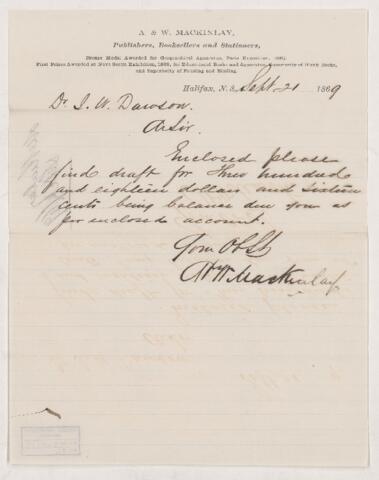 A & W. MACKINLAY,
Publishers, Booksellers and Stationers,
Bronze Medal Awarded for Geographical Apparatus, Paris Exposition, 1867.
First Prizes Awarded at Nova Scotia Exhibition, 1868, for Educational Books and Apparatus, Superiority of Blank Books,
and Superiority of Printing and Binding.
Halifax, N. S. Sept. 21 1869
Dr J. W. Dawson.
Dr Sir.
Enclosed please
find draft for Three hundred
and eighteen dollars and sixteen
cents being balance due you as
per enclosed account.
Your Ob St
A & W Mackinlay